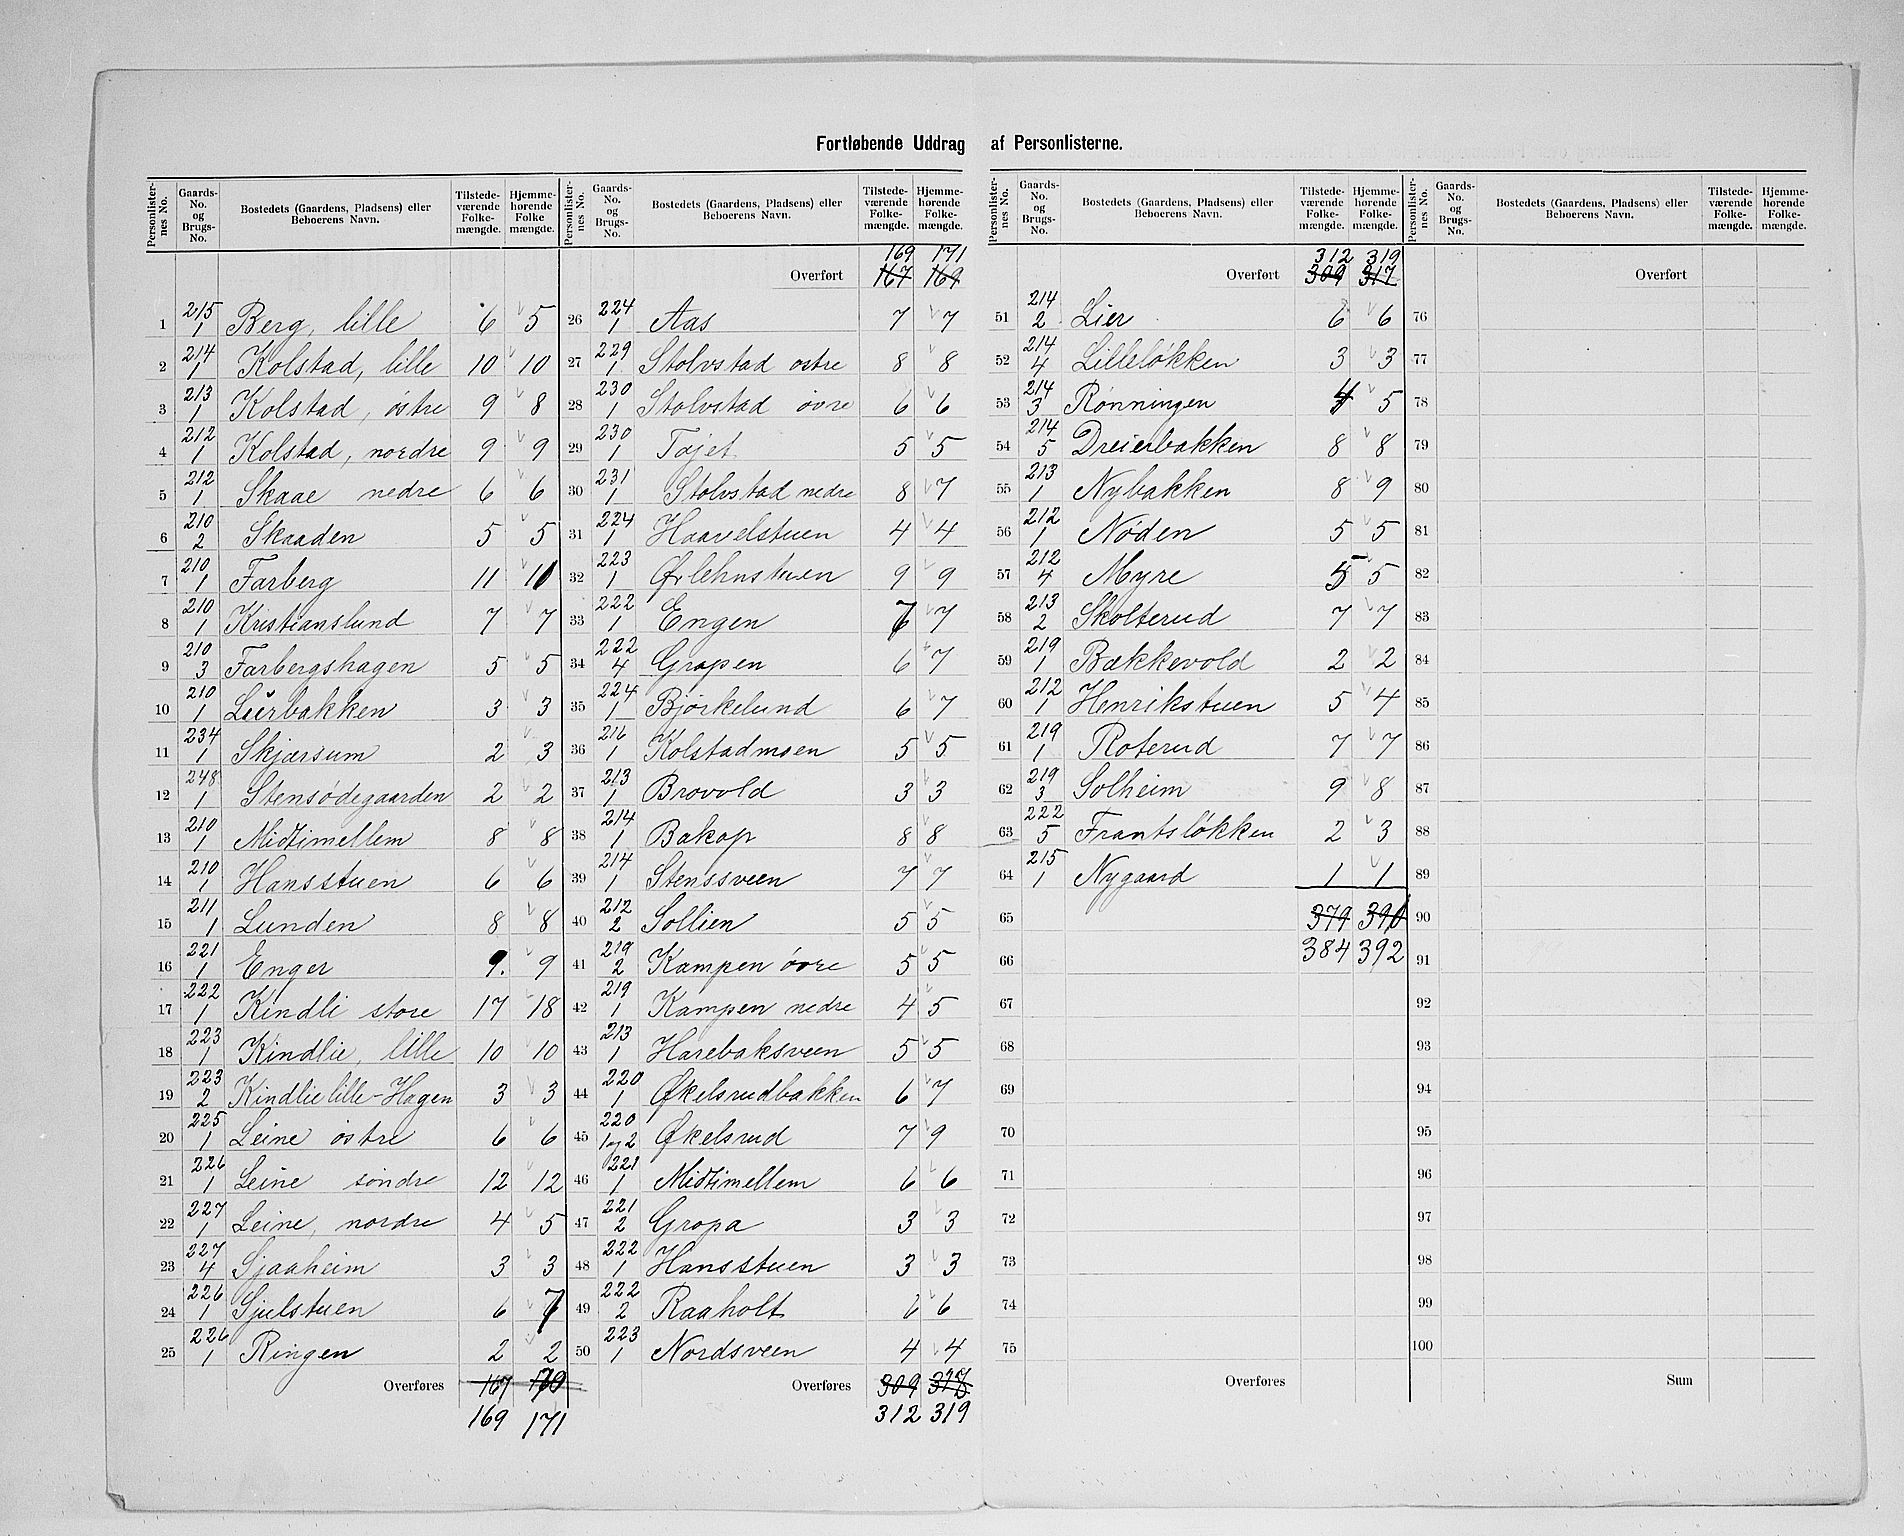 Fortløbende Uddrag af Personlisterne.
Personlister-nes No. | Gaards-No. og Brugs-No. | Bostedets (Gaardens, Pladsens) eller Beboerens Navn. | Tilstede-værende Folke-mængde. | Hjemme-hørende Folke mængde.
1 | 215/1 | Berg, lille | 6 | 5
2 | 214/1 | Kolstad, lille | 10 | 10
3 | 213/1 | Kolstad, östre | 9 | 8
4 | 212/1 | Kolstad, nordre | 9 | 9
5 | 212/1 | Skaae nedre | 6 | 6
6 | 210/2 | Skaaden | 5 | 5
7 | 210/1 | Farberg | 11 | 11
8 | 210/1 | Kristianslund | 7 | 7
9 | 210/3 | Farbergshagen | 5 | 5
10 | 210/1 | Lierbakken | 3 | 3
11 | 234/1 | Skjærsum | 2 | 3
12 | 248/1 | Stensødegaarden | 2 | 2
13 | 210/1 | Midtimellem | 8 | 8
14 | 210/1 | Hansstuen | 6 | 6
15 | 211/1 | Lunden | 8 | 8
16 | 221/1 | Enger | 9. | 9
17 | 222/1 | Kindli store | 17 | 18
18 | 223/1 | Kindlie, lille | 10 | 10
19 | 223/2 | Kindlie lille-Hagen | 3 | 3
20 | 225/1 | Leine östre | 6 | 6
21 | 226/1 | Leine söndre | 12 | 12
22 | 227/1 | Leine, nordre | 4 | 5
23 | 227/4 | Sjaaheim | 3 | 3
24 | 226/1 | Gjulstuen | 6 | 7
25 | 226/1 | Ringen | 2 | 2
Overføres 167 170
169 171
Personlister-nes No. | Gaards-No. og Brugs-No. | Bostedets (Gaardens, Pladsens) eller Beboerens Navn. | Tilstede-værende Folke-mængde. | Hjemme-hørende Folke-mængde.
169 171
Overført 167 169
26 | 224/1 | Aas | 7 | 7
27 | 229/1 | Stolvstad ostre | 8 | 8
28 | 230/1 | Stolvstad övre | 6 | 6
29 | 230/1 | Tajet | 5 | 5
30 | 231/1 | Stolvstad nedre | 8 | 7
31 | 224/1 | Haavelstuen | 4 | 4
32 | 223/1 | Ørlehnstuen | 9 | 9
33 | 222/1 | Engen | 7 | 7
34 | 222/4 | Gropen | 6 | 7
35 | 224/1 | Bjørkelund | 6 | 7
36 | 216/1 | Kolstadmoen | 5 | 5
37 | 213/1 | Brovold | 3 | 3
38 | 214/1 | Bakop | 8 | 8
39 | 214/1 | Stenssveen | 7 | 7
40 | 212/2 | Sollien | 5 | 5
41 | 219/2 | Kampen övre | 5 | 5
42 | 219/1 | Kampen nedre | 4 | 5
43 | 213/1 | Harebaksveen | 5 | 5
44 | 220/1 | Økelsrudbakken | 6 | 7
45 | 220/1 og 2 | Økelsrud | 7 | 9
46 | 221/1 | Midtimellem | 6 | 6
47 | 221/2 | Gropa | 3 | 3
48 | 222/1 | Hansstuen | 3 | 3
49 | 222/2 | Raaholt | 6 | 6
50 | 223/1 | Nordsveen | 4 | 4
Overføres 309 317
312 319
Personlister-nes No. | Gaards-No. og Brugs-No. | Bostedets (Gaardens, Pladsens) eller Beboerens Navn. | Tilstede-værende Folke-mængde. | Hjemme-hørende Folke-mængde.
312 319
Overført 309 317
51 | 214/2 | Lier | 6 | 6
52 | 214/4 | Lilleløkken | 3 | 3
53 | 214/3 | Rønningen | 4 | 5
54 | 214/5 | Dreierbakken | 8 | 8
55 | 213/1 | Nybakken | 8 | 9
56 | 212/1 | Nøden | 5 | 5
57 | 212/4 | Myre | 5 | 5
58 | 213/2 | Skolterud | 7 | 7
59 | 219/1 | Bækkevold | 2 | 2
60 | 212/1 | Henrikstuen | 5 | 4
61 | 219/1 | Roterud | 7 | 7
62 | 219/3 | Solheim | 9 | 8
63 | 222/5 | Frantsløkken | 2 | 3
64 | 215/1 | Nygaard | 1 | 1
65 | 379 | 390
66 | 384 | 392
67
68
69
70
71
72
73
74
75
Overføres
Personlister-nes No. | Gaards-No. og Brugs-No. | Bostedets (Gaardens, Pladsens) eller Beboerens Navn. | Tilstede-værende Folke-mængde. | Hjemme-hørende Folke-mængde.
Overført
76
77
78
79
80
81
82
83
84
85
86
87
88
89
90
91
92
93
94
95
96
97
98
99
100
Sum